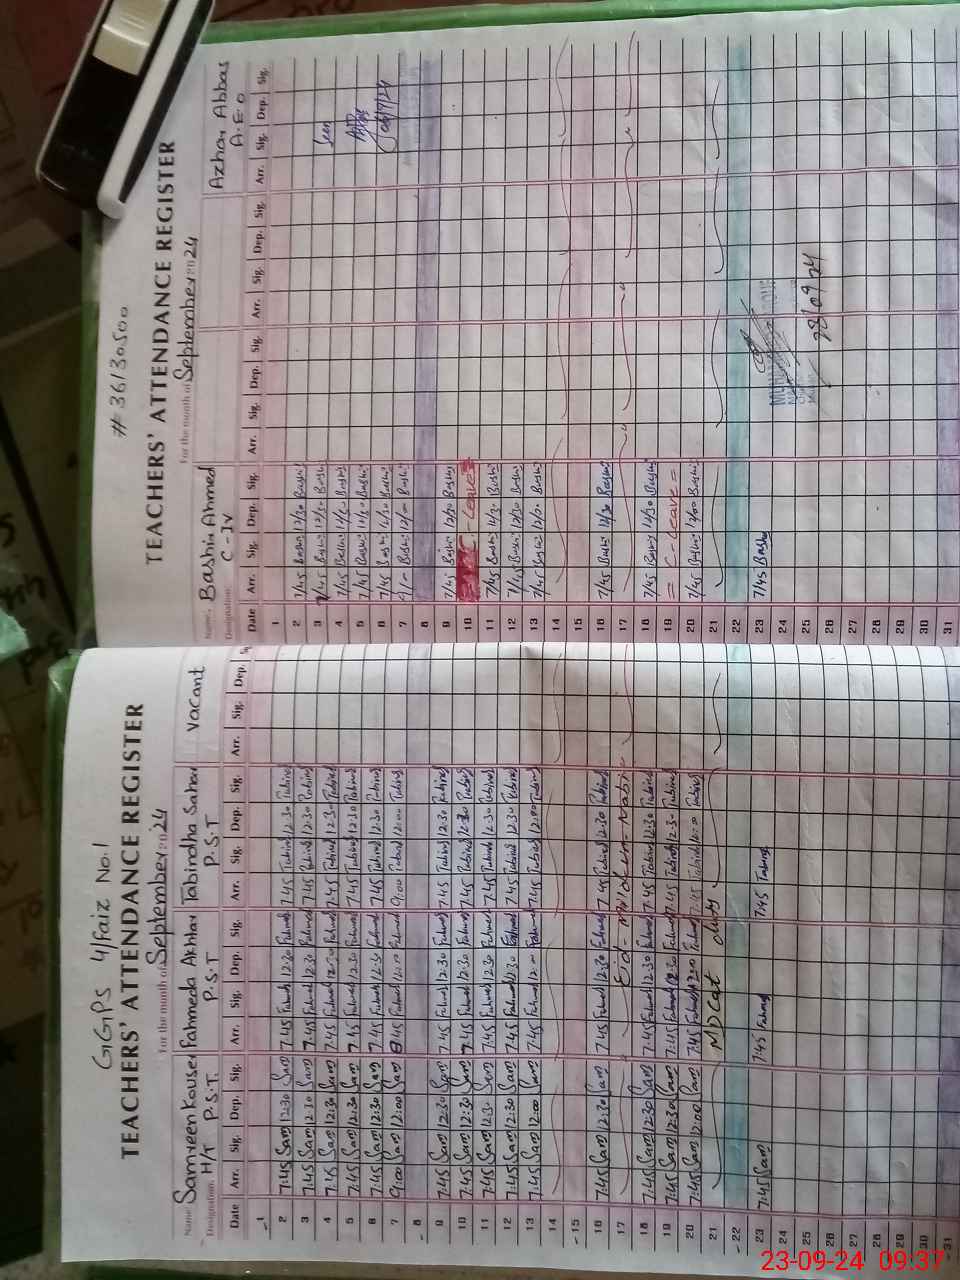 GGPS 4/Faiz No.1
TEACHERS' ATTENDANCE REGISTER
For the month of September 2024
Name: Samreen Kouser Fahmeda Akhtar Tabindha Sahar Vacant
Designation: H/T P.S.T. P.S.T P.S.T
Date Arr. Sig. Dep. Sig. Arr. Sig. Dep. Sig. Arr. Sig. Dep. Sig. Arr. Sig. Dep.
1
2 7:45 Sam 12:30 Sam 7:45 Fahmed 12:30 Fahmed 7:45 Tabind 12:30 Tabind
3 7:45 Sam 12:30 Sam 7:45 Fahmed 12:30 Fahmed 7:45 Tabind 12:30 Tabind
4 7:45 Sam 12:30 Sam 7:45 Fahmed 12:30 Fahmed 7:45 Tabind 12:30 Tabind
5 7:45 Sam 12:30 Sam 7:45 Fahmed 12:30 Fahmed 7:45 Tabind 12:30 Tabind
6 7:45 Sam 12:30 Sam 7:45 Fahmed 12:30 Fahmed 7:45 Tabind 12:30 Tabind
7 9:00 Sam 12:00 Sam 8:45 Fahmed Fahmed 9:00 Tabind 12:00 Tabind
8
9 7:45 Sam 12:30 Sam 7:45 Fahmed 12:30 Fahmed 7:45 Tabind 12:30 Tabind
10 7:45 Sam 12:30 Sam 7:45 Fahmed 12:30 Fahmed 7:45 Tabind 12:30 Tabind
11 7:45 Sam 12:30 Sam 7:45 Fahmed 12:30 Fahmed 7:45 Tabind 12:30 Tabind
12 7:45 Sam 12:30 Sam 7:45 Fahmed 12:30 Fahmed 7:45 Tabind 12:30 Tabind
13 7:45 Sam 12:00 Sam 7:45 Fahmed 12:00 Fahmed 7:45 Tabind 12:00 Tabind
14
15
16 7:45 Sam 12:30 Sam 7:45 Fahmed 12:30 Fahmed 7:45 Tabind 12:30 Tabind
17 Eid-Milad-un-Nabi
18 7:45 Sam 12:30 Sam 7:45 Fahmed 12:30 Fahmed 7:45 Tabind 12:30 Tabind
19 7:45 Sam 12:30 Sam 7:45 Fahmed 12:30 Fahmed 7:45 Tabind 12:30 Tabind
20 7:45 Sam 12:00 Sam 7:45 Fahmed 12:00 Fahmed 7:45 Tabind 12:00 Tabind
21 MDCAT duty
22
23 7:45 Sam 7:45 Fahmed 7:45 Tabind
24
25
26
27
28
29
30
31
# 36130500
TEACHERS' ATTENDANCE REGISTER
For the month of September 2024
Name: Bashir Ahmed Azhar Abbas
Designation: C-IV A.E.O
Date Arr. Sig. Dep. Sig. Arr. Sig. Dep. Sig. Arr. Sig. Dep. Sig. Arr. Sig. Dep. Sig.
1
2 7/45 Bashir 12/30 Bashir
3 7/45 Bashir 12/30 Bashir Seen
4 7/45 Bashir 12/30 Bashir
5 7/45 Bashir 12/30 Bashir
6 7/45 Bashir 12/30 Bashir 06/9/24
7 Bashir 12/00 Bashir
8
9 7/45 Bashir 12/30 Bashir
10 Leave
11 7/45 Bashir 12/30 Bashir
12 7/45 Bashir 12/30 Bashir
13 7/45 Bashir Bashir
14
15
16 7/45 Bashir 12/30 Bashir
17
18 7/45 Bashir 12/30 Bashir
19 = C-Leave =
20 7/45 Bashir 12/00 Bashir
21
22
23 7/45 Bashir
24
25
26
27
28
29
30
31
23-09-24 09:37